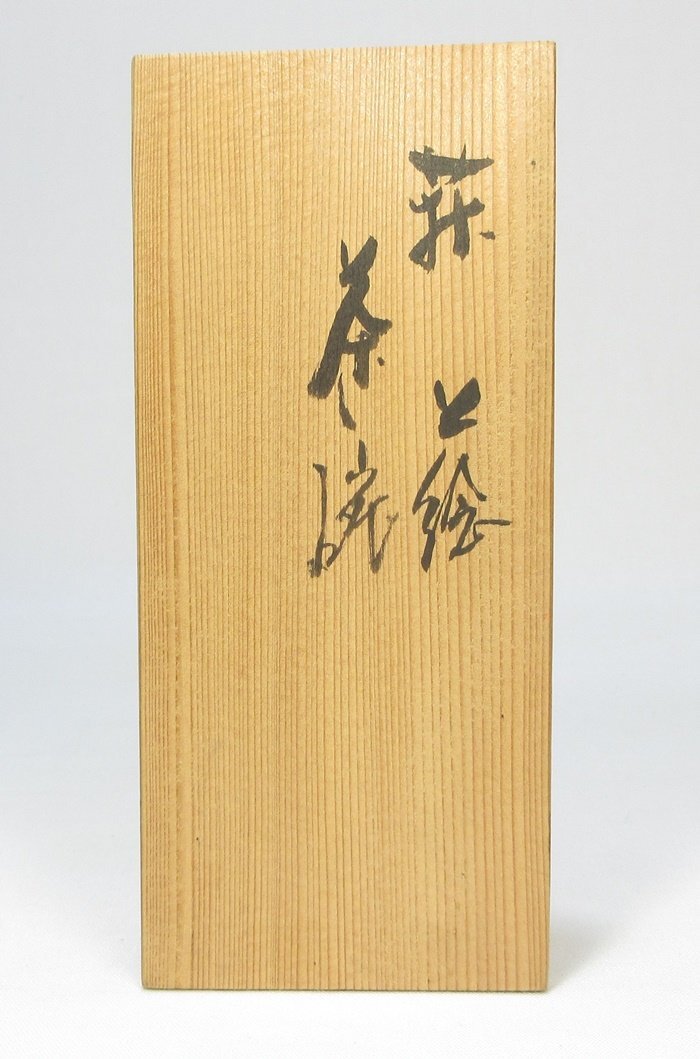 萩上絵
茶碗